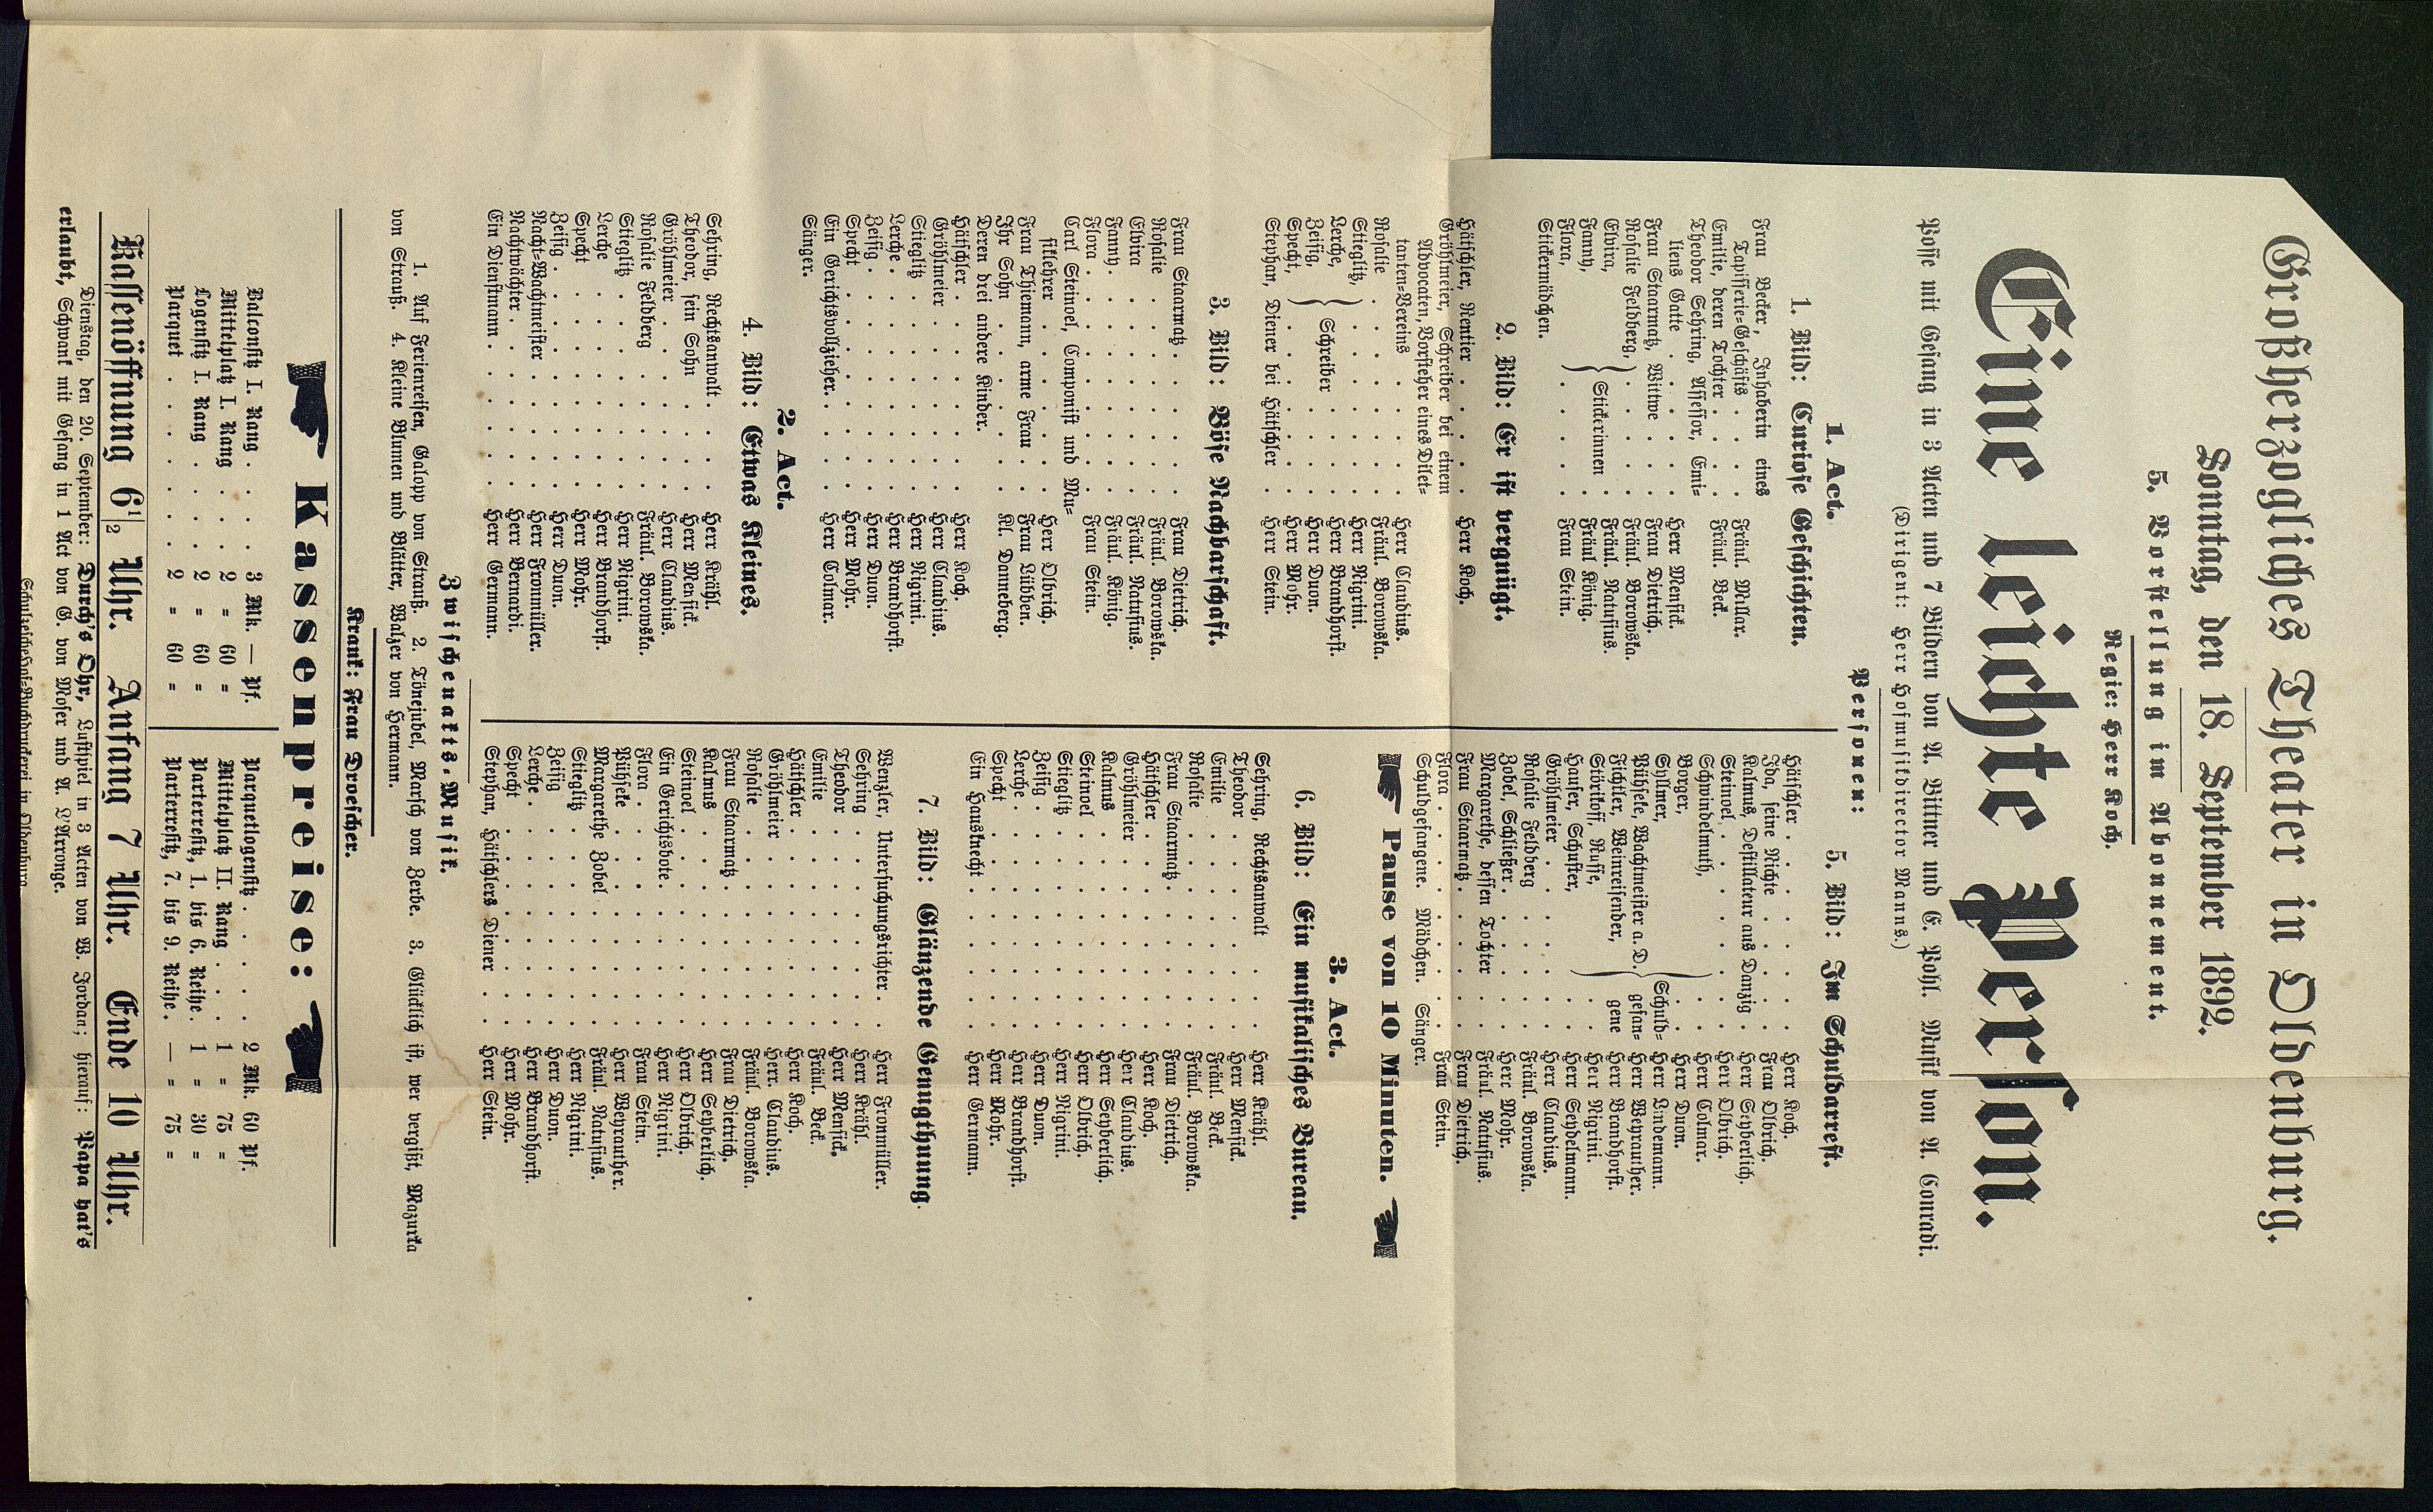 Großherzogliches Theater in Oldenburg.
Sonntag, den 18. September 1892.
5. Vorstellung im Abonnement.
Regie: Herr Koch.
Eine leichte Person.
Posse mit Gesang in 3 Acten und 7 Bildern von A. Bittner und E. Pohl. Musik von A. Conradi.
(Dirigent: Herr Hofmusikdirector Manns.)
Personen:
1. Act.
1. Bild: Curiose Geschichten.
Frau Becker, Inhaberin eines
Tapisserie-Geschäfts . . . Fräul. Millar.
Emilie, deren Tochter . . . Fräul. Beck.
Theodor Sehring, Assessor, Emi-
liens Gatte . . . Herr Mensick.
Frau Staarmatz, Wittwe . . . Frau Dietrich.
Rosalie Feldberg, . . . Fräul. Borowska.
Elvira, } Stickerinnen . Fräul. Natusius.
Fanny, . Fräul König.
Flora, . . . Frau Stein.
Stickermädchen.
2. Bild: Er ist vergnügt.
Hätschler, Rentier . . . Herr Koch.
Gröhlmeier, Schreiber bei einem
Advocaten, Vorsteher eines Dilet-
tanten-Vereins . . . Herr Claudius.
Rosalie . . . Fräul. Borowska.
Stieglitz, . . . Herr Nigrini.
Lerche, } Schreiber . . . Herr Brandhorst.
Zeisig, . . . Herr Duon.
Specht, . . . Herr Mohr.
Stephan, Diener bei Hätschler . Herr Stein.
3. Bild: Böse Nachbarschaft.
Frau Staarmatz . . . Frau Dietrich.
Rosalie . . . Fräul. Borowska.
Elvira . . . Fräul. Natusius.
Fanny . . . Fräul. König.
Flora . . . Frau Stein.
Carl Steinoel, Componist und Mu-
siklehrer . . . Herr Olbrich.
Frau Thiemann, arme Frau . . . Frau Lübben.
Ihr Sohn . . . Kl. Danneberg.
Deren drei andere Kinder.
Hätschler . . . Herr Koch.
Gröhlmeier . . . Herr Claudius.
Stieglitz . . . Herr Nigrini.
Lerche . . . Herr Brandhorst.
Zeisig . . . Herr Duon.
Specht . . . Herr Mohr.
Ein Gerichtsvollzieher . . . Herr Colmar.
Sänger.
2. Act.
4. Bild: Etwas Kleines.
Sehring, Rechtsanwalt . . . Herr Krähl.
Theodor, sein Sohn . . . Herr Mensick.
Gröhlmeier . . . Herr Claudius.
Rosalie Feldberg . . . Fräul. Borowska.
Stieglitz . . . Herr Nigrini.
Lerche . . . Herr Brandhorst.
Specht . . . Herr Mohr.
Zeisig . . . Herr Duon.
Nacht-Wachtmeister . . . Herr Frommüller.
Nachtwächter . . . Herr Bernardi.
Ein Dienstmann . . . Herr Germann.
5. Bild: Im Schuldarrest.
Hätschler . . . Herr Koch.
Ida, seine Nichte . . . Frau Olbrich.
Kalmus, Destillateur aus Danzig . Herr Seyberlich.
Steinoel . . . Herr Olbrich.
Schwindelmuth, . . . Herr Colmar.
Borger, . . . Herr Duon.
Syllmer, Schuld- Herr Lindemann.
Pühseke, Wachtmeister a. D. } gefan- Herr Weyrauther.
Fichtler, Weinreisender, gene Herr Brandhorst.
Störikoff, Russe, . . . Herr Nigrini.
Hauser, Schuster, . . . Herr Seydelmann.
Gröhlmeier . . . Herr Claudius.
Rosalie Feldberg . . . Fräul. Borowska.
Zobel, Schließer . . . Herr Mohr.
Margarethe, dessen Tochter . . . Fräul. Natusius.
Frau Staarmatz . . . Frau Dietrich.
Flora . . . Frau Stein.
Schuldgefangene. Mädchen. Sänger.
Pause von 10 Minuten.
3. Act.
6. Bild: Ein musikalisches Bureau.
Sehring, Rechtsanwalt . . . Herr Krähl.
Theodor . . . Herr Mensick.
Emilie . . . Fräul. Beck.
Rosalie . . . Fräul. Borowska.
Frau Staarmatz . . . Frau Dietrich.
Hätschler . . . Herr Koch.
Gröhlmeier . . . Herr Claudius.
Kalmus . . . Herr Seyberlich.
Steinoel . . . Herr Olbrich.
Stieglitz . . . Herr Nigrini.
Zeisig . . . Herr Duon.
Lerche . . . Herr Brandhorst.
Specht . . . Herr Mohr.
Ein Hausknecht . . . Herr Germann.
7. Bild: Glänzende Genugthuung.
Wenzler, Untersuchungsrichter . . Herr Frommüller.
Sehring . . . Herr Krähl.
Theodor . . . Herr Mensick.
Emilie . . . Fräul. Beck.
Hätschler . . . Herr Koch.
Gröhlmeier . . . Herr. Claudius.
Rosalie . . . Fräul. Borowska.
Frau Staarmatz . . . Frau Dietrich.
Kalmus . . . Herr Seyberlich.
Steinoel . . . Herr Olbrich.
Ein Gerichtsbote . . . Herr Nigrini.
Flora . . . Frau Stein.
Pühseke . . . Herr Weyrauther.
Margarethe Zobel . . . Fräul. Natusius.
Stieglitz . . . Herr Nigrini.
Zeisig . . . Herr Duon.
Lerche . . . Herr Brandhorst.
Specht . . . Herr Mohr.
Stephan, Hätschlers Diener . . . Herr Stein.
Zwischenakts-Musik.
1. Auf Ferienreisen, Galopp von Strauß. 2. Tönejubel, Marsch von Zerbe. 3. Glücklich ist, wer vergißt, Mazurka
von Strauß. 4. Kleine Blumen und Blätter, Walzer von Hermann.
Krank: Frau Droescher.
Kassenpreise:
Balconsitz I. Rang . . . 3 Mk. — Pf.
Mittelplatz I. Rang . . . 2 „ 60 „
Logensitz I. Rang . . . 2 „ 60 „
Parquet . . . 2 „ 60 „
Parquetlogensitz . . . 2 Mk. 60 Pf.
Mittelplatz II. Rang . . . 1 „ 75 „
Parterresitz, 1. bis 6. Reihe . 1 „ 30 „
Parterresitz, 7. bis 9. Reihe . — „ 75 „
Kassenöffnung 6 1/2 Uhr. Anfang 7 Uhr. Ende 10 Uhr.
Dienstag, den 20. September: Durch's Ohr, Lustspiel in 3 Acten von W. Jordan; hierauf: Papa hat's
erlaubt, Schwank mit Gesang in 1 Act von G. von Moser und A. L'Arronge.
Schulzesche Hof-Buchdruckerei in Oldenburg.